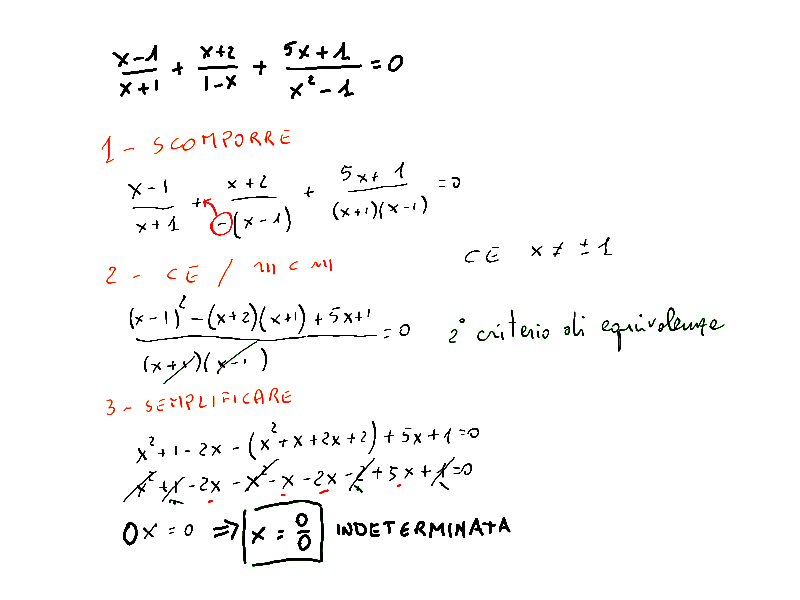 (x-1)/(x+1) + (x+2)/(1-x) + (5x+1)/(x²-1) = 0
1 - SCOMPORRE
(x-1)/(x+1) + (x+2)/(-(x-1)) + (5x+1)/((x+1)(x-1)) = 0
CE x ≠ ± 1
2 - CE / m c m
((x-1)² - (x+2)(x+1) + 5x+1)/((x+1)(x-1)) = 0 2° criterio di equivalenza
3 - SEMPLIFICARE
x² + 1 - 2x - (x² + x + 2x + 2) + 5x + 1 = 0
x² + 1 - 2x - x² - x - 2x - 2 + 5x + 1 = 0
0x = 0 ⇒ x = 0/0 INDETERMINATA